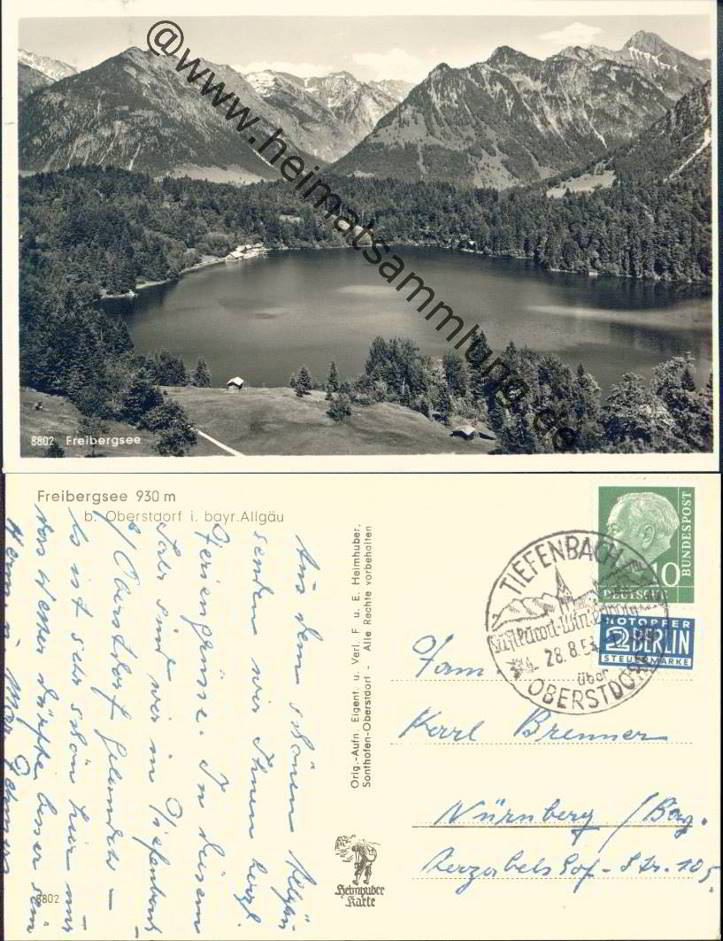 @www.heimatsammlung.de
8802 Freibergsee
Freibergsee 930 m
b. Oberstdorf i. bayr. Allgäu
Aus dem schönen Allgäu
senden wir Ihnen herzl.
Feriengrüsse. In diesem
Jahr sind wir in Tiefenbach
b/ Oberstdorf gelandet –
Es ist sehr schön hier nur
das Wetter dürfte besser sein
Orig.-Aufn. Eigent. u. Verl. F. u. E. Heimhuber,
Sonthofen-Oberstdorf - Alle Rechte vorbehalten
Heimhuber
Karte
8802
10
DEUTSCHE BUNDESPOST
NOTOPFER
2 BERLIN
STEUERMARKE
TIEFENBACH
28.8.54
über
OBERSTDORF
Fam.
Karl Brenner
Nürnberg /Bay.
Herzogbelshof-Str. 105